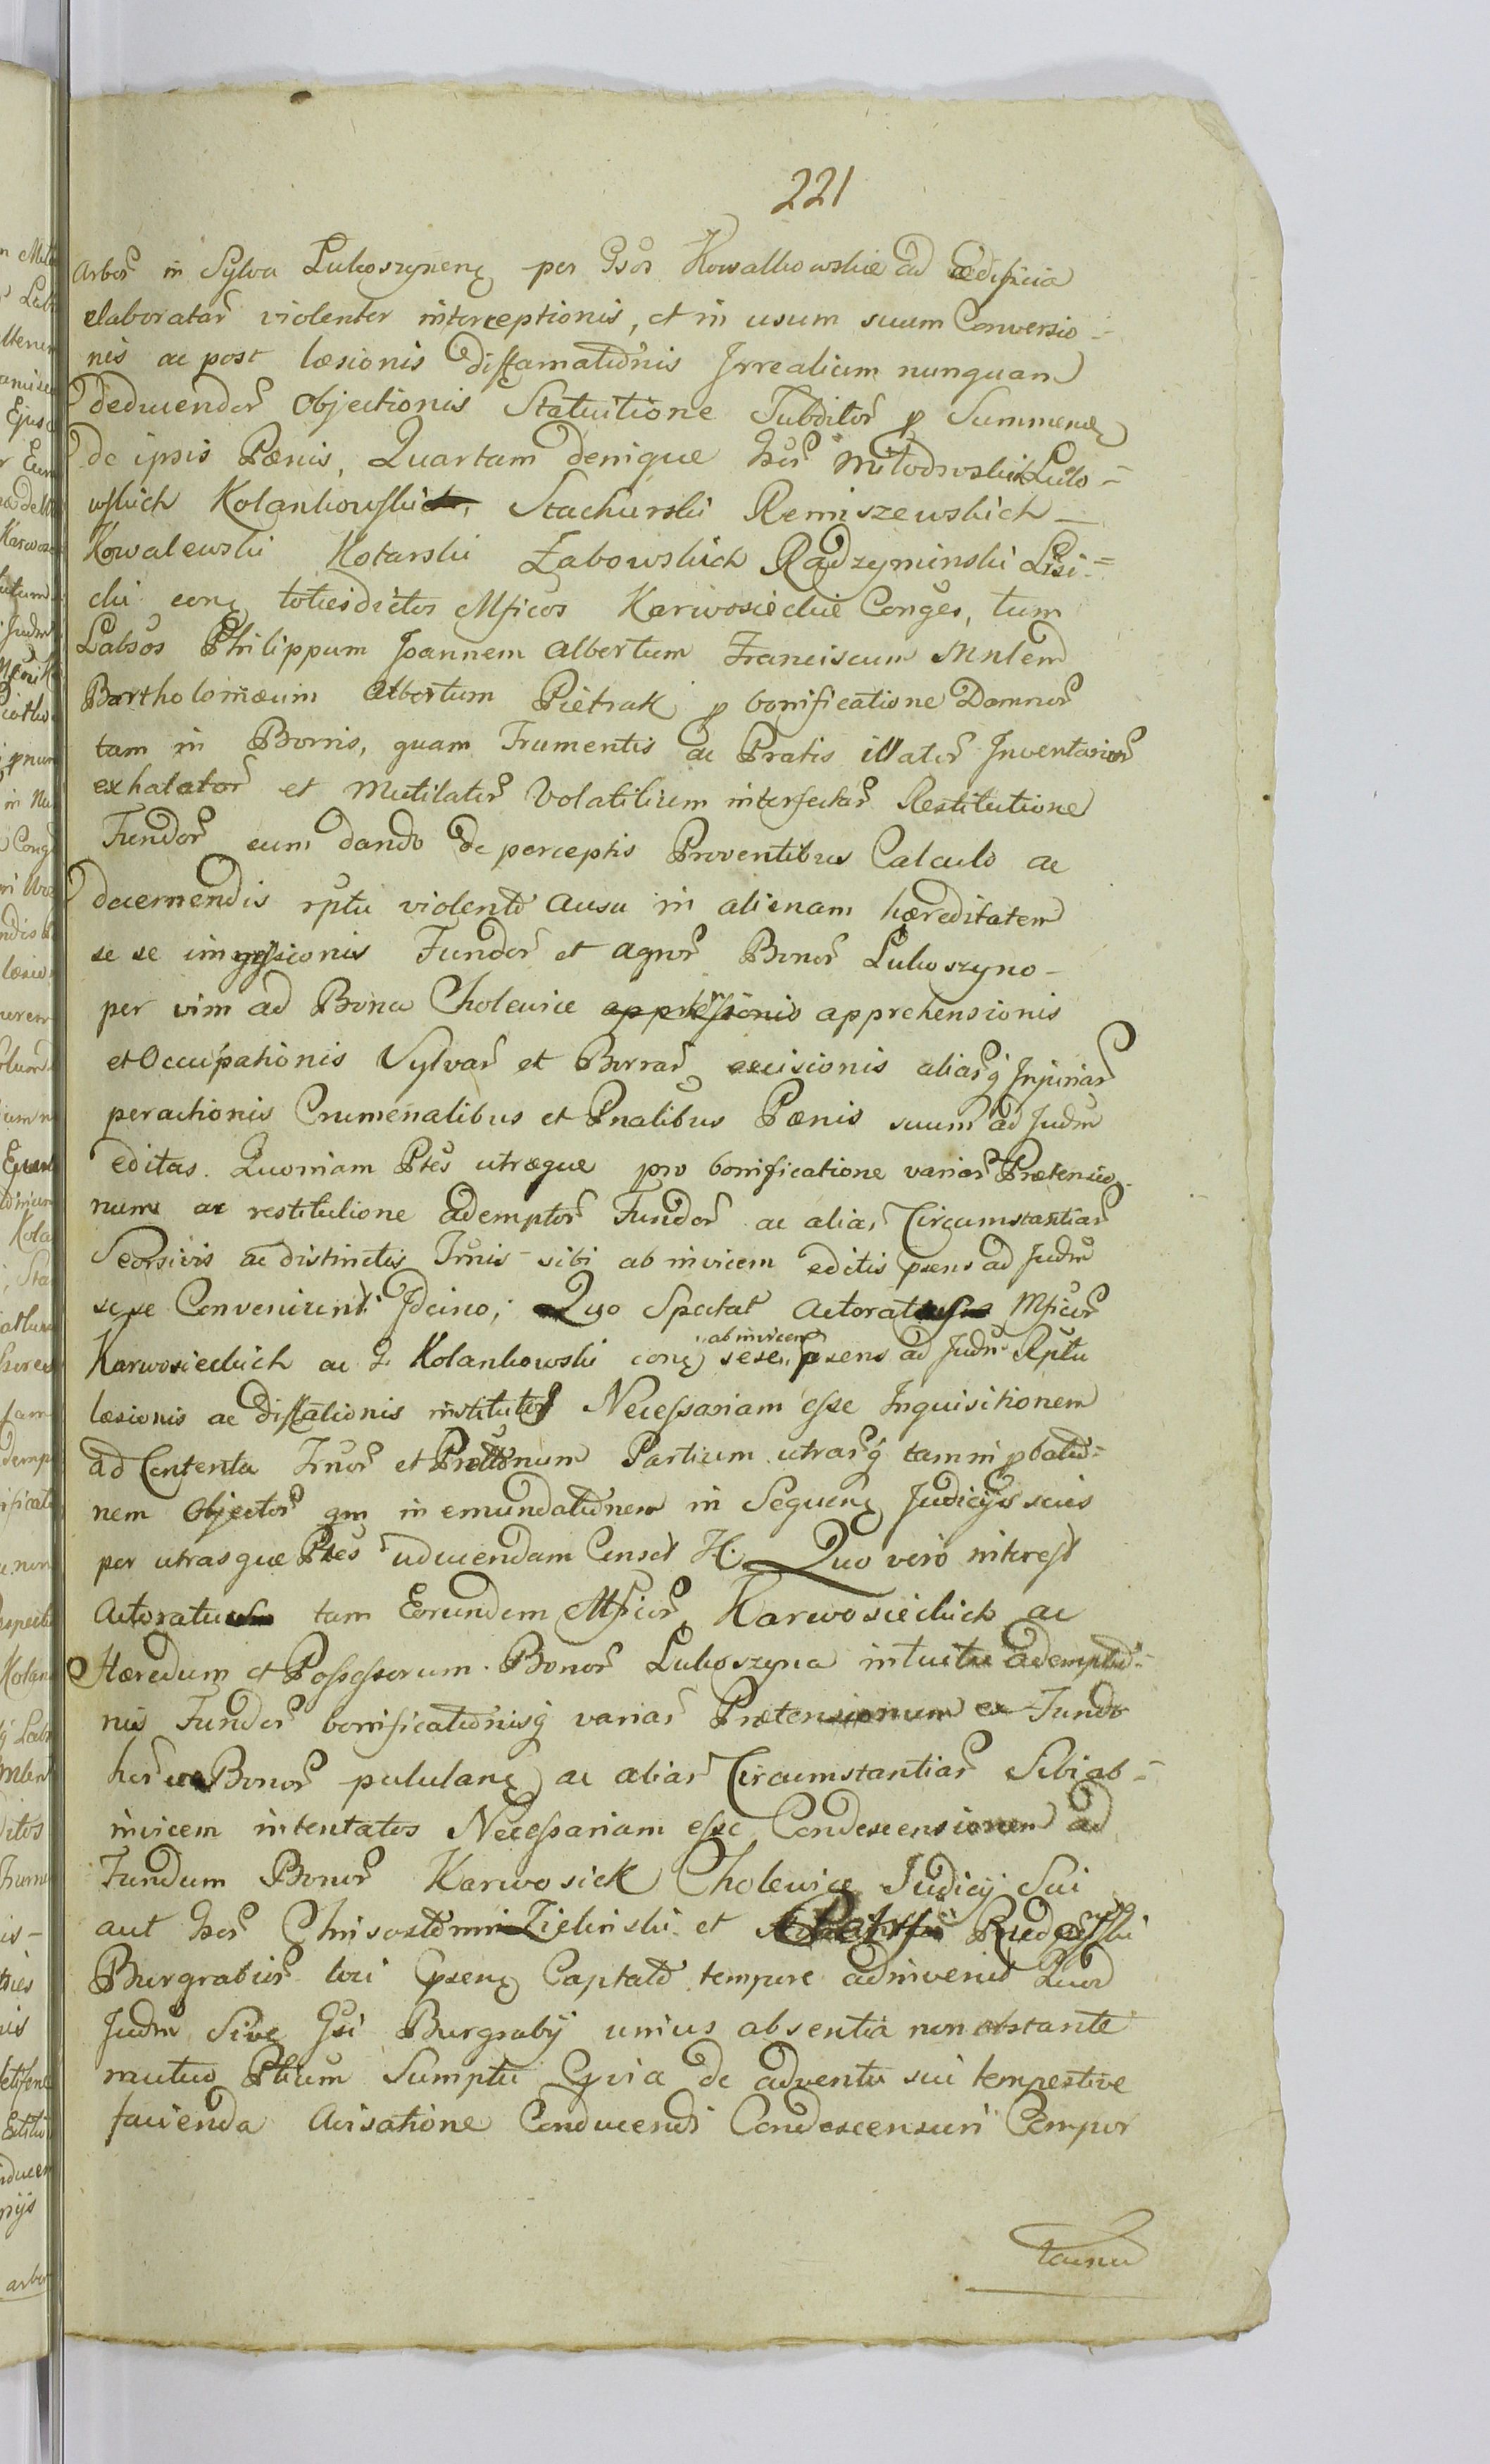 221
Arbor in Sylva Lukoszynen per Gsos Kowalkowskie ad ædificia
elaboratar violenter interceptionis, et in usum suum Conversio-
nis ac post læsionis diffamationis Irrealium nunquam
deducendor Objectionis Statuitione Subditor p Summen
de ipsis Pœnis, Quartam denique Gsor Młodowskich Lulo-
wskich Kolankowski, Stachurski Remiszewskich
Kowalewski Kotarski Żabowskich Radzyminski Lisi-
cki con totiesdictos Mficos Karwosieckie Conges, tum
Labsos Philippum Joannem Albertum Franciscum
Bartholomæum Albertum Pietrak p bonificatione Damnor
tam in Borris, quam Frumentis ac Pratis illator Inventarior
exhalator et Mutilator Volatilium interfector Restitutione
Fundor cum dando de perceptis Proventibus Calculo ac
decernendis rptu violento Ausu in alienam hæreditatem
se se immissionis Fundor et agror Bonor Lukoszyno
per vim ad Bona Cholewice apprehensionis
et Occupationis Sylvar et Borrar excisionis aliarq Injuriar
peractionis Crumenalibus et Pnalibus Pœnis suum ad Judm
editas. Quoniam Ptes utræque pro bonificatione variar Prætensio-
num ac restitutione ademptor Fundor ac aliar Circumstantiar
Seorsivis ac distinctis Trnis sibi ab invicem editis psens ad Judm
sese Convenirent Idcirco; Quo Spectat Actorat Mficor
Karwosieckich ac G Kolankowski con sese ab invicem psens ad Judm Rptu
læsionis ac diffationis institutor Necessariam esse Inquisitionem
ad Contenta Trnor et Prottonum Partium utrarq tam in pbatio-
nem Objector qm in emundationem in Sequen Judicijs suis
per utrasque Ptes aducendam Censet H. Quo vero interest
Actoratu tam Eorundem Mficor Karwosieckich ac
Hæredum et Possessorum Bonor Lukoszyna intuitu ademptio-
nis Fundor bonificationisq variar Prætensionum ex Fundo
hor Bonor pululan ac aliar Circumstantiar Sibi ab-
invicem intentatos Necessariam esse Condescensionem ad
Fundum Bonor Karwosiek Cholewice Judicij Sui
aut Gsor Chrisostomi Zielinski et
Burgrabior loci psen Captato tempore adinvenit Quod
Judm Sive Gsi Burgrabij unius absentia non obstante
mutuo Ptium Sumptu Qvia de adventu sui tempestive
facienda Avisatione Conducendi Condescensuri Compor